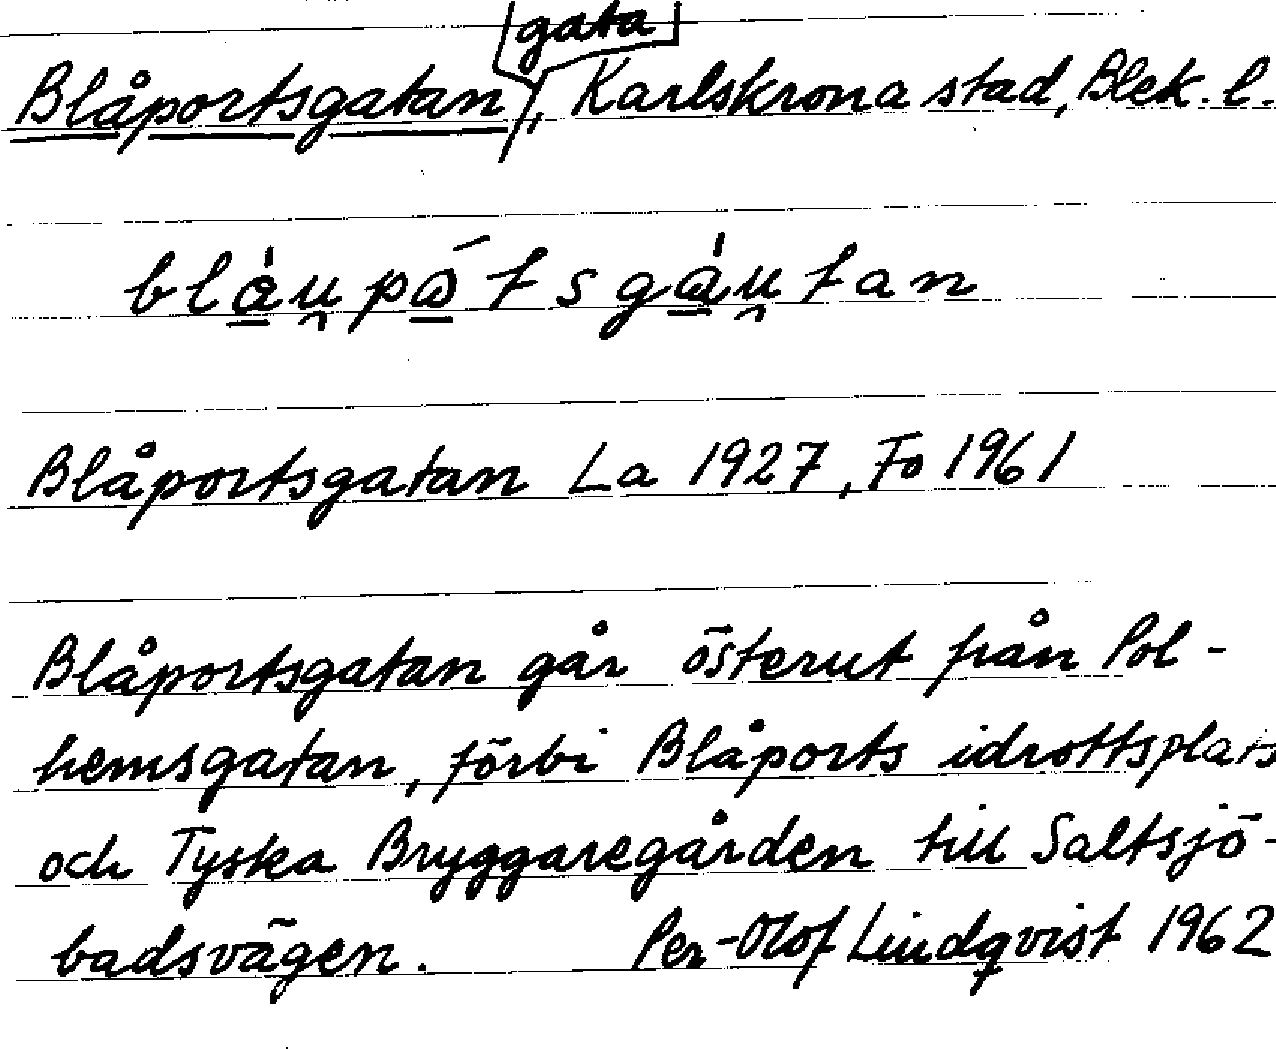 gata
Blåportsgatan, Karlskrona stad, Blek. l.
blàu̯pǻtsgàu̯tan
Blåportsgatan La 1927, Fo 1961
Blåportsgatan går österut från Pol-
hemsgatan, förbi Blåports idrottsplats
och Tyska Bryggaregården till Saltsjö-
badsvägen. Per-Olof Lindqvist 1962